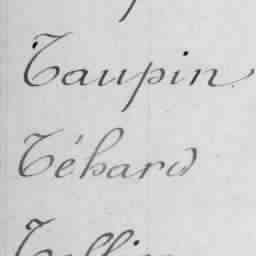 Taupin
Téhard